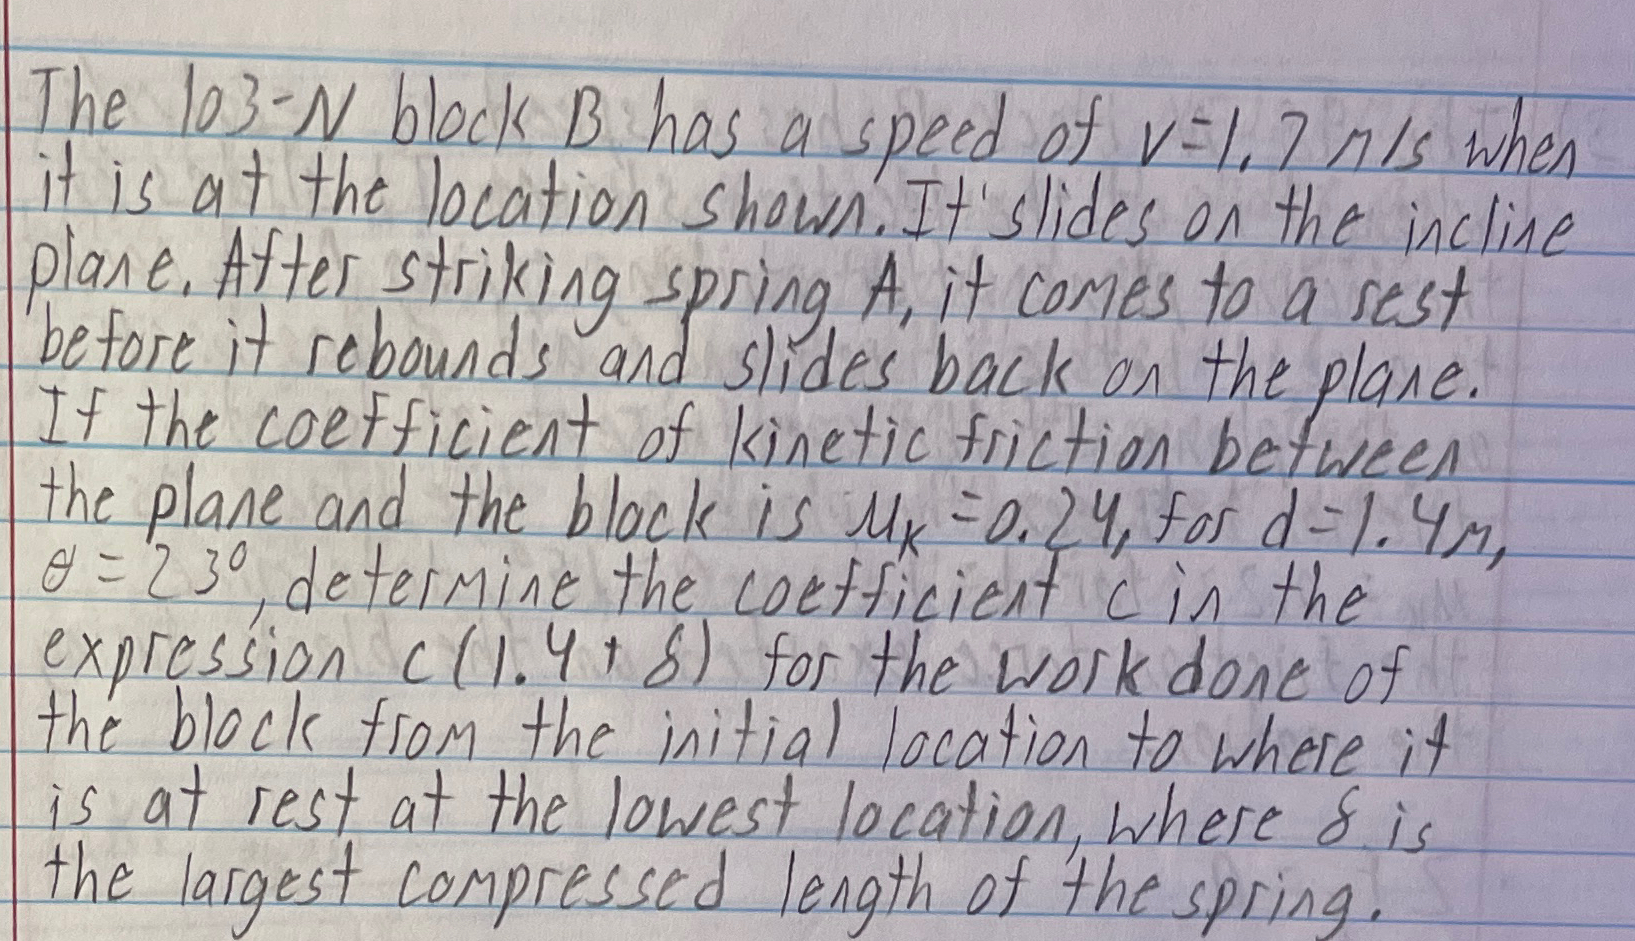 The 103-N block B has a speed of v=1.7 m/s when
it is at the location shown. It slides on the incline
plane. After striking spring A, it comes to a rest
before it rebounds and slides back on the plane.
If the coefficient of kinetic friction between
the plane and the block is μk=0.24, for d=1.4m,
θ=23°, determine the coefficient c in the
expression c(1.4+δ) for the work done of
the block from the initial location to where it
is at rest at the lowest location, where δ is
the largest compressed length of the spring.